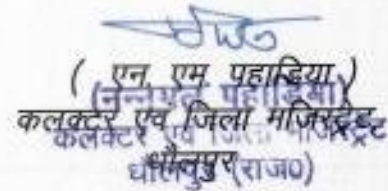 ( एन. एम पहाडिया )
(नन्नूमल पहाडिया)
कलक्टर एवं जिला मजिस्ट्रेट
कलक्टर एवं जिला मजिस्ट्रेट
धौलपुर
धौलपुर (राज०)